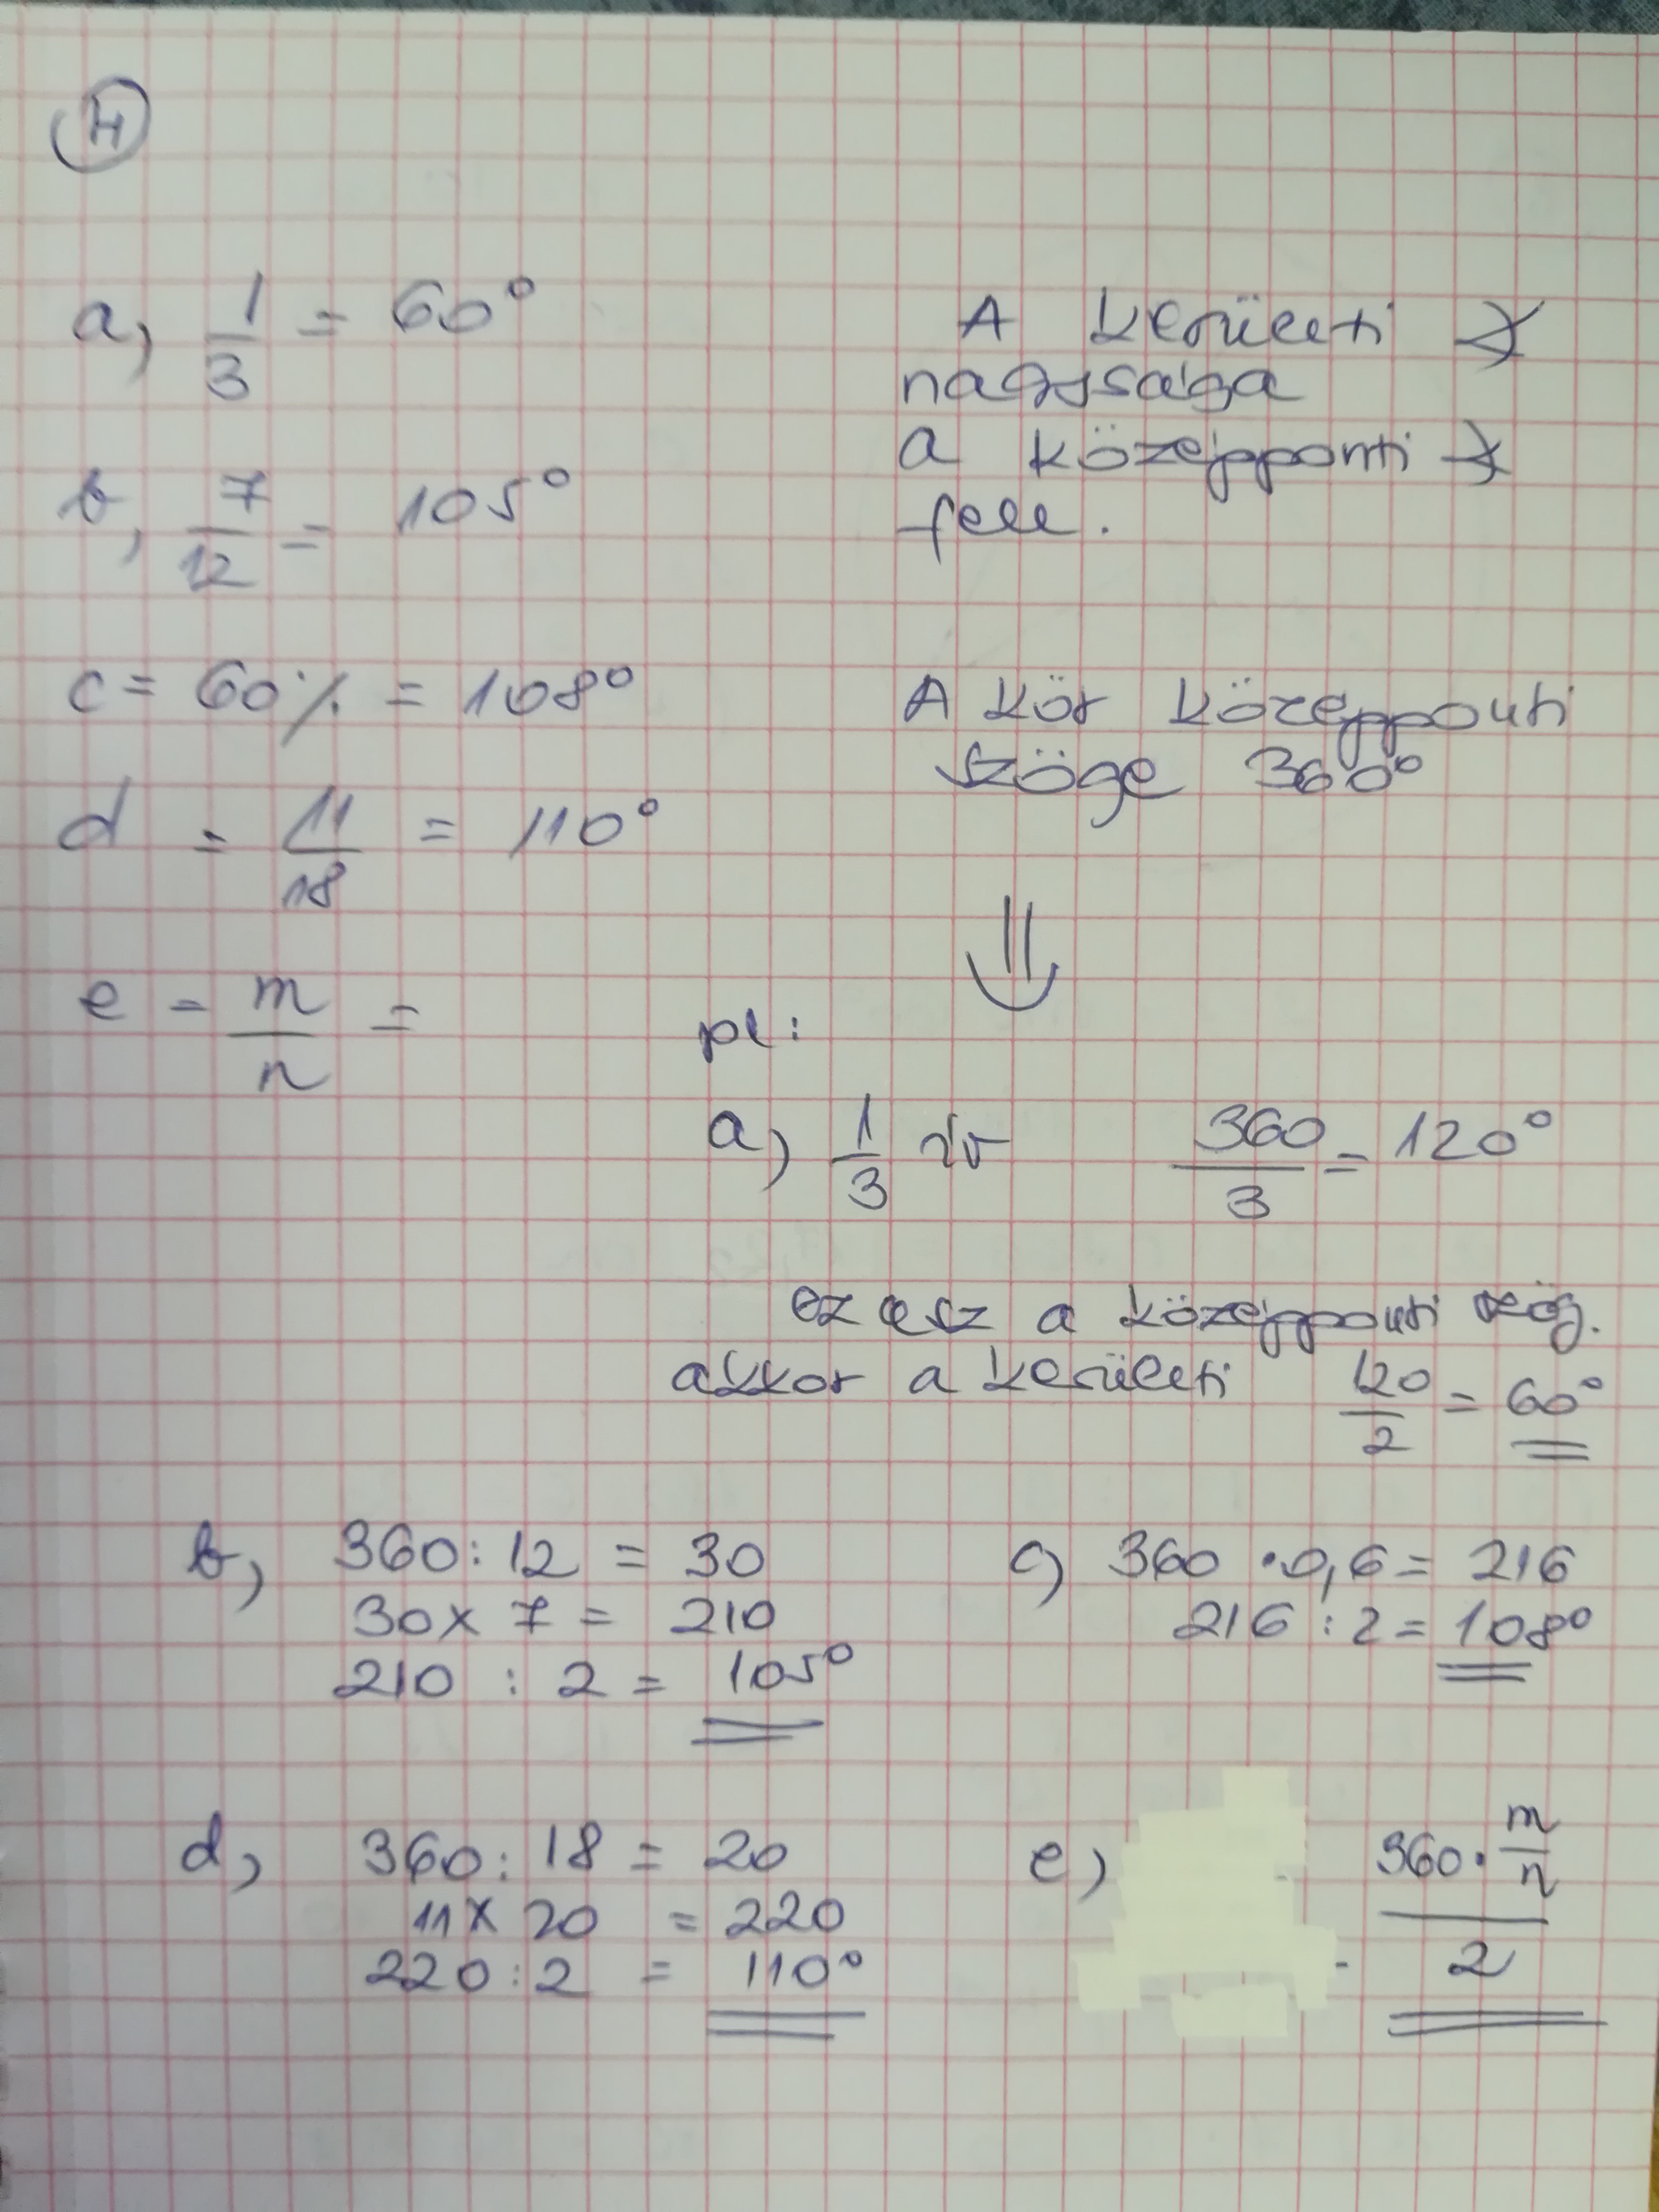 4
a, 1/3 = 60°
A kerületi ∢
nagysága
a középponti ∢
fele.
b, 7/12 = 105°
c = 60% = 108°
A kör középponti
szöge 360°
d = 11/18 = 110°
⇓
e - m/n =
pl:
a, 1/3 ív 360/3 = 120°
ez lesz a középponti szög.
akkor a kerületi 120/2 = 60°
b, 360:12 = 30
30 x 7 = 210
210 : 2 = 105°
c) 360 · 0,6 = 216
216 : 2 = 108°
d, 360 : 18 = 20
11 x 20 = 220
220 : 2 = 110°
e) (360 · m/n)/2